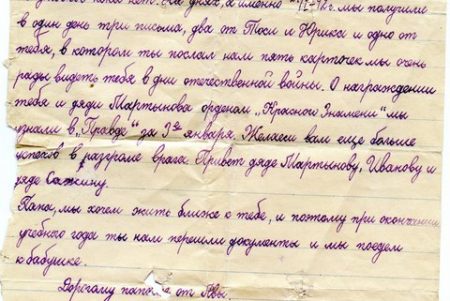 на днях, а именно мы получили
в один день три письма, два от Тоси и Юрика и одно от
тебя, в котором ты послал нам пять карточек мы очень
рады видеть тебя в дни отечественной войны. О награждении
тебя и дяди Мартынова орденом „Красного Знамени" мы
узнали в „Правде" за января. Желаем вам еще больше
успехов в разгроме врага. Привет дяде Мартынову, Иванову и
дяде
Папа, мы хотем жить ближе к тебе, и поэтому при окончании
учебного года ты нам перешли документы и мы поедем
к бабушке.
Дорогому от